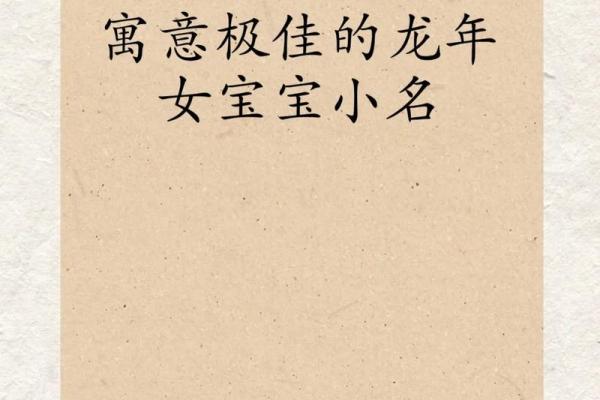 寓意极佳的龙年
女宝宝小名